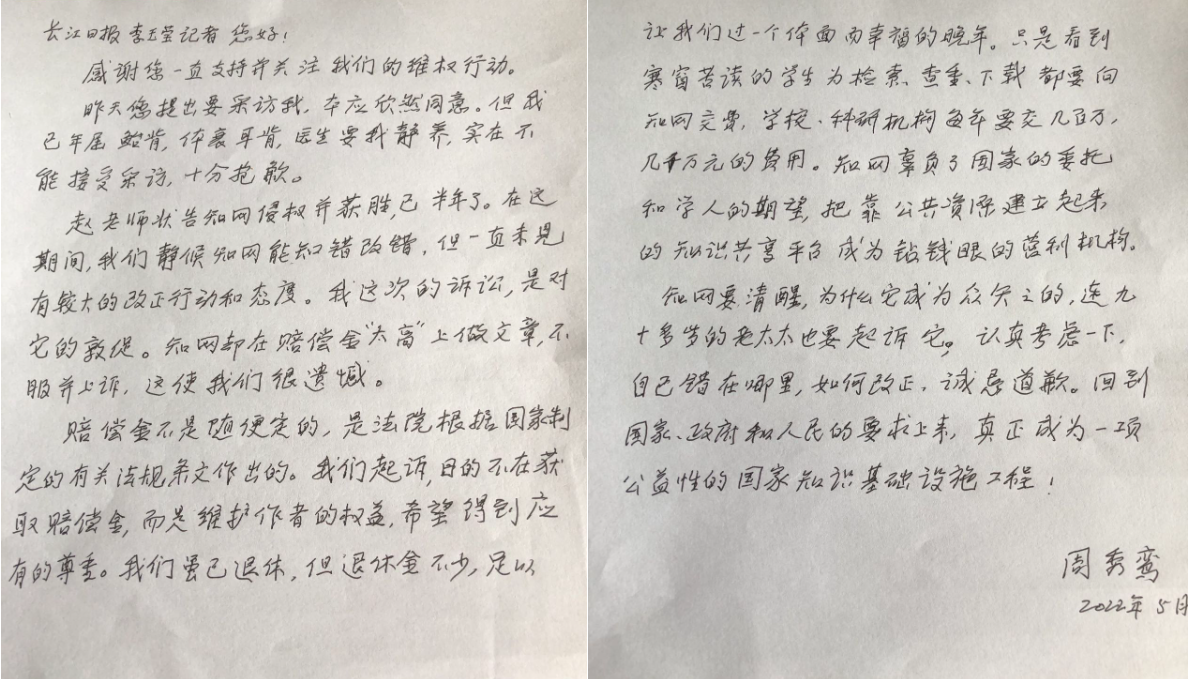 长江日报李玉莹记者您好！
感谢您一直支持并关注我们的维权行动。
昨天您提出要采访我，本应欣然同意。但我
已年届鲐背，体衰耳背，医生要我静养，实在不
能接受采访，十分抱歉。
赵老师状告知网侵权并获胜，已半年了。在这
期间，我们静候知网能知错改错，但一直未见
有较大的改正行动和态度。我这次的诉讼，是对
它的敦促。知网却在赔偿金“太高”上做文章，不
服并上诉，这使我们很遗憾。
赔偿金不是随便定的，是法院根据国家制
定的有关法规条文作出的。我们起诉，目的不在获
取赔偿金，而是维护作者的权益，希望得到应
有的尊重。我们虽已退休，但退休金不少，足以
让我们过一个体面而幸福的晚年。只是看到
寒窗苦读的学生为检索、查重、下载都要向
知网交费，学校、科研机构每年要交几百万，
几千万元的费用。知网辜负了国家的委托
和学人的期望，把靠公共资源建立起来
的知识共享平台成为钻钱眼的营利机构。
知网要清醒，为什么它成为众矢之的，连九
十多岁的老太太也要起诉它。认真考虑一下，
自己错在哪里，如何改正，诚恳道歉。回到
国家、政府和人民的要求上来，真正成为一项
公益性的国家知识基础设施工程！
周秀鸾
2022年5月